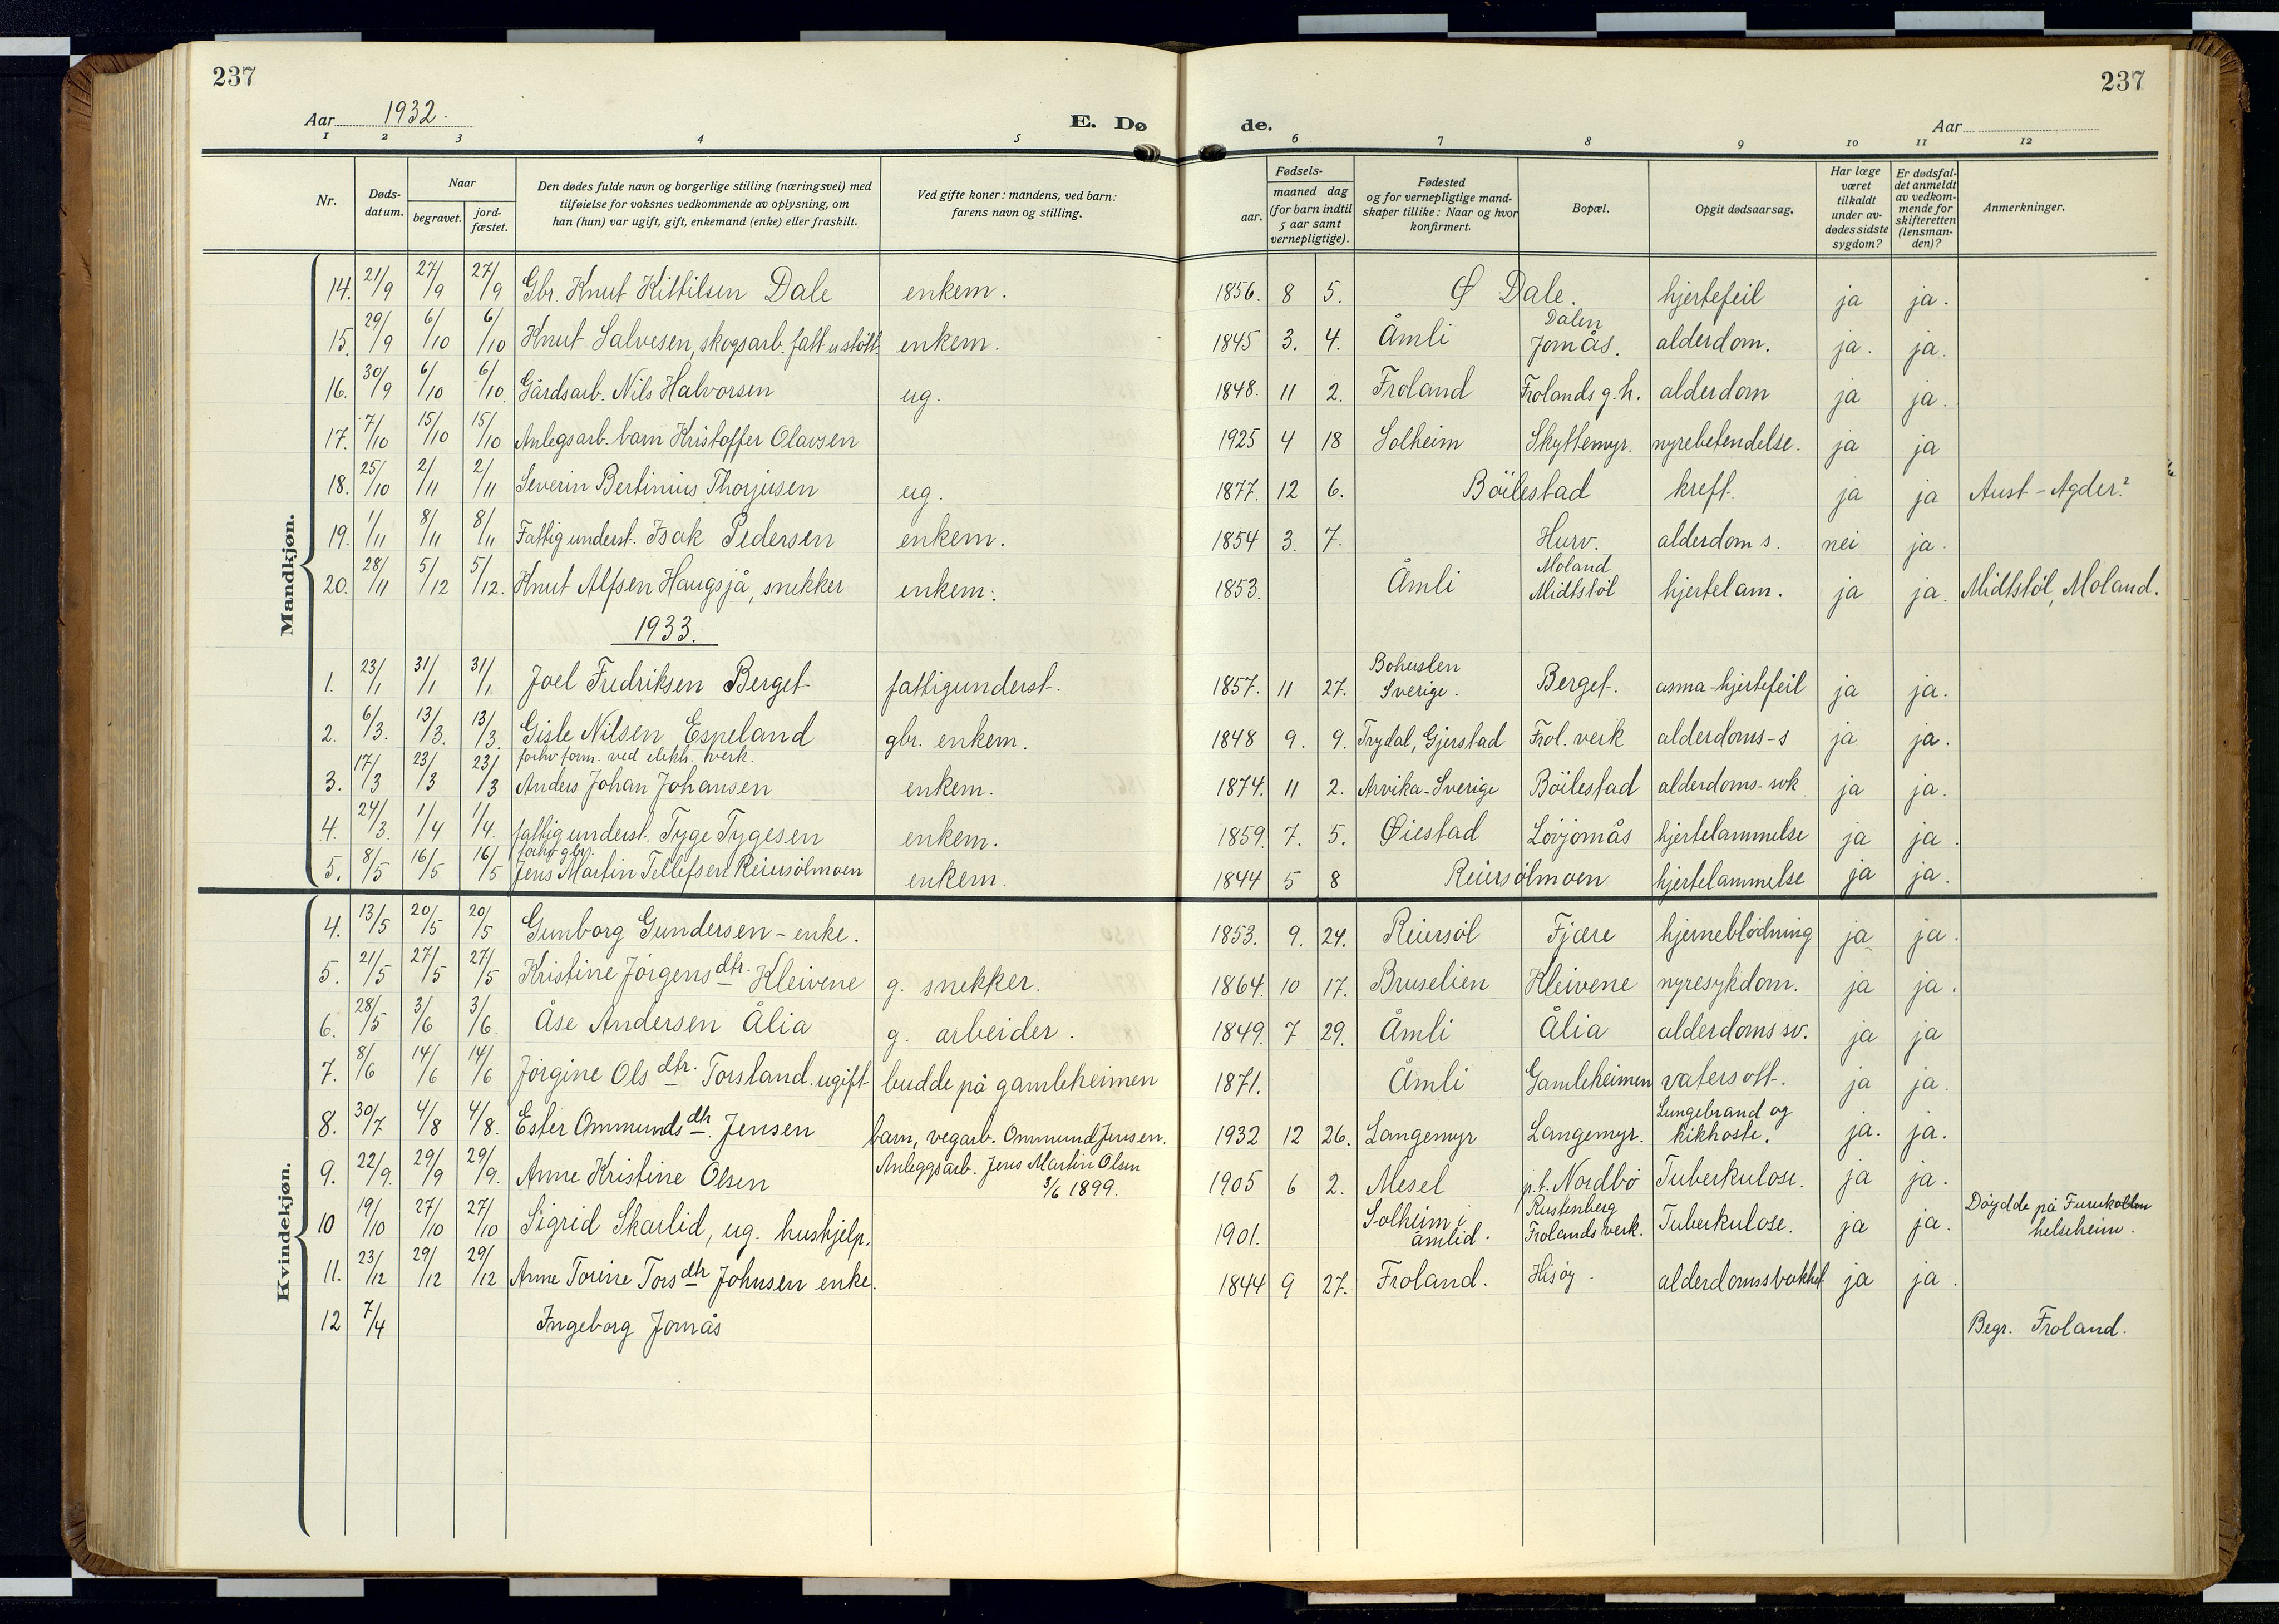 237
237
Aar 1932.
E. Dø
de.
Aar
1 2 3 4 5 6 7 8 9 10 11 12
Nr. Døds-datum. Naar begravet. jord-fæstet. Den dødes fulde navn og borgerlige stilling (næringsvei) med tilføielse for voksnes vedkommende av oplysning, om han (hun) var ugift, gift, enkemand (enke) eller fraskilt. Ved gifte koner: mandens, ved barn: farens navn og stilling. Fødsels- aar. maaned dag (for barn indtil 5 aar samt vernepligtige). Fødested og for vernepligtige mand-skaper tillike: Naar og hvor konfirmert. Bopæl. Opgit dødsaarsag. Har læge været tilkaldt under av-dødes sidste sygdom? Er dødsfal-det anmeldt av vedkom-mende for skifteretten (lensman-den)? Anmerkninger.
Mandkjøn.
14. 21/9 27/9 27/9 Gbr. Knut Kittilsen Dale enkem. 1856. 8 5. Ø Dale. hjertefeil ja ja.
15. 29/9 6/10 6/10 Knut Salvesen, skogsarb. fatt. u.stött. enkem. 1845 3. 4. Åmli Dalen Jomås. alderdom. ja. ja.
16. 30/9 6/10 6/10. Gårdsarb. Nils Halvorsen ug. 1848. 11 2. Froland Frolands g.h. alderdom ja ja.
17. 7/10 15/10 15/10 Anlegsarb. barn Kristoffer Olavsen 1925 4 18 Solheim Skyttemyr. nyrebetendelse. ja ja
18. 25/10 2/11 2/11 Severin Bertinius Thorjusen ug. 1877. 12 6. Böilestad kreft. ja ja Aust-Agder?
19. 1/11 8/11 8/11 Fattigunderst. Isak Pedersen enkem. 1854 3. 7. Hurv. alderdom s. nei ja.
20. 28/11 5/12 5/12. Knut Alfsen Haugsjå, snekker enkem. 1853. Åmli Moland Midtstöl hjertelam. ja ja. Midtstöl, Moland.
1933.
1. 23/1 31/1 31/1. Joel Fredriksen Berget fattigunderst. 1857. 11 27. Bohuslen Sverige. Berget. asma-hjertefeil ja ja.
2. 6/3. 13/3. 13/3. Gisle Nilsen Espeland gbr. enkem. 1848 9. 9. Trydal, Gjerstad Frol. verk alderdoms-s ja ja.
forhv form. ved elektr. verk.
3. 17/3 23/3 23/3 Anders Johan Johansen enkem. 1874. 11 2. Arvika-Sverige Böilestad alderdoms-svk ja ja.
4. 24/3. 1/4 1/4. fattigunderst. Tyge Tygesen enkem. 1859. 7. 5. Øiestad Lövjomås hjertelammelse ja ja.
forhv gbr.
5. 8/5 16/5 16/5 Jens Martin Tellefsen Reiersölmoen enkem. 1844 5 8 Reiersölmoen hjertelammelse ja ja.
Kvindekjøn.
4. 13/5 20/5 20/5 Gunborg Gundersen - enke. 1853. 9. 24. Reiersöl Fjære hjerneblödning ja ja.
5. 21/5 27/5 27/5 Kristine Jörgensdtr. Kleivene g. snekker. 1864. 10 17. Bruselien Kleivene nyresykdom. ja ja.
6. 28/5 3/6 3/6 Åse Andersen Ålia g. arbeider. 1849. 7 29. Åmli Ålia alderdoms sv. ja ja
7. 8/6 14/6 14/6 Jörgine Olsdtr. Torsland. ugift budde på gamleheimen 1871. Åmli Gamleheimen vatersott. ja ja.
8. 30/7 4/8 4/8. Ester Ommundsdtr. Jensen barn, vegarb. Ommund Jensen. 1932 12 26. Langemyr Langemyr. Lungebrand og kikhoste. ja. ja.
9. 22/9. 29/9 29/9. Anne Kristine Olsen Anleggsarb. Jens Martin Olsen 3/6 1899. 1905 6 2. Mesel p.t. Nordbö Tuberkulose. ja ja.
10 19/10 27/10 27/10 Sigrid Skarlid, ug. hushjelp. 1901. Solheim i åmlid. Rustenberg Frolands verk. Tuberkulose. ja ja. Döydde på Furukollen helseheim.
11. 23/12 29/12 29/12 Anne Torine Torsdtr Johnsen enke. 1844 9 27. Froland. Hisöy. alderdomssvakhet ja ja.
12 7/4 Ingeborg Jomås Begr. Froland.